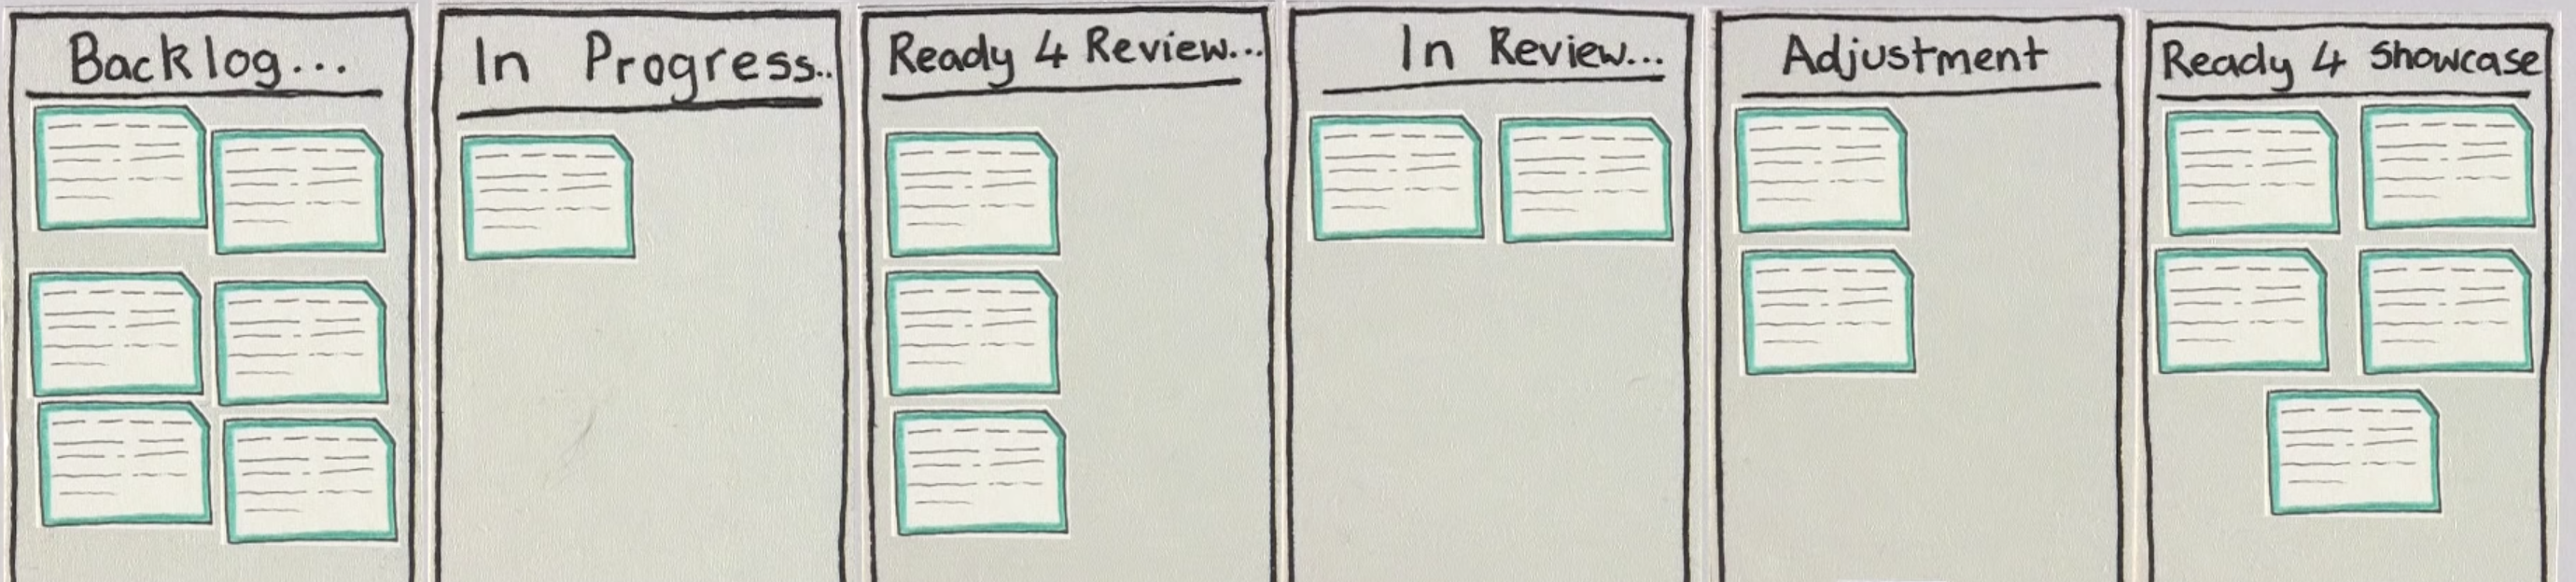 Backlog...
In Progress..
Ready 4 Review...
In Review...
Adjustment
Ready 4 Showcase